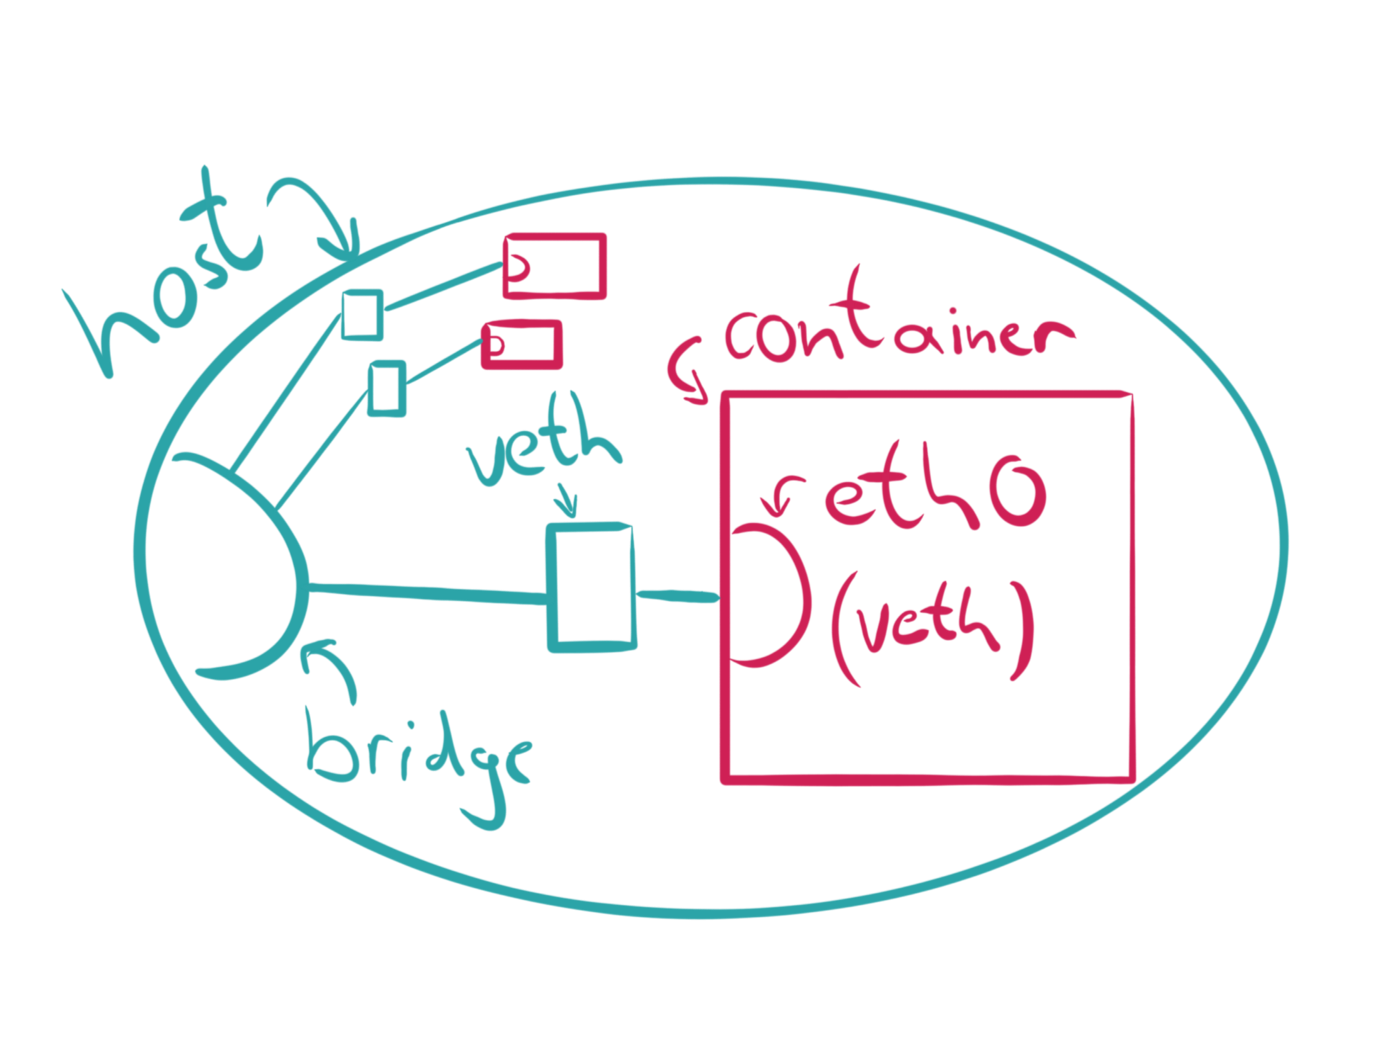 host
container
veth
eth0
(veth)
bridge